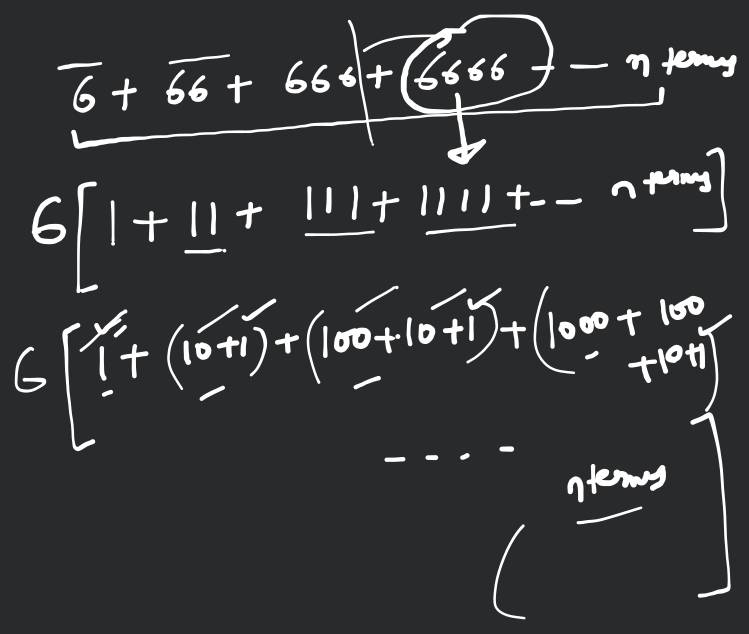 6 + 66 + 666 + 6666 - - n terms
6[1 + 11 + 111 + 1111 + - - n terms]
6[1 + (10+1) + (100+10+1) + (1000 + 100
+10+1)
- - . -
n terms
( ]